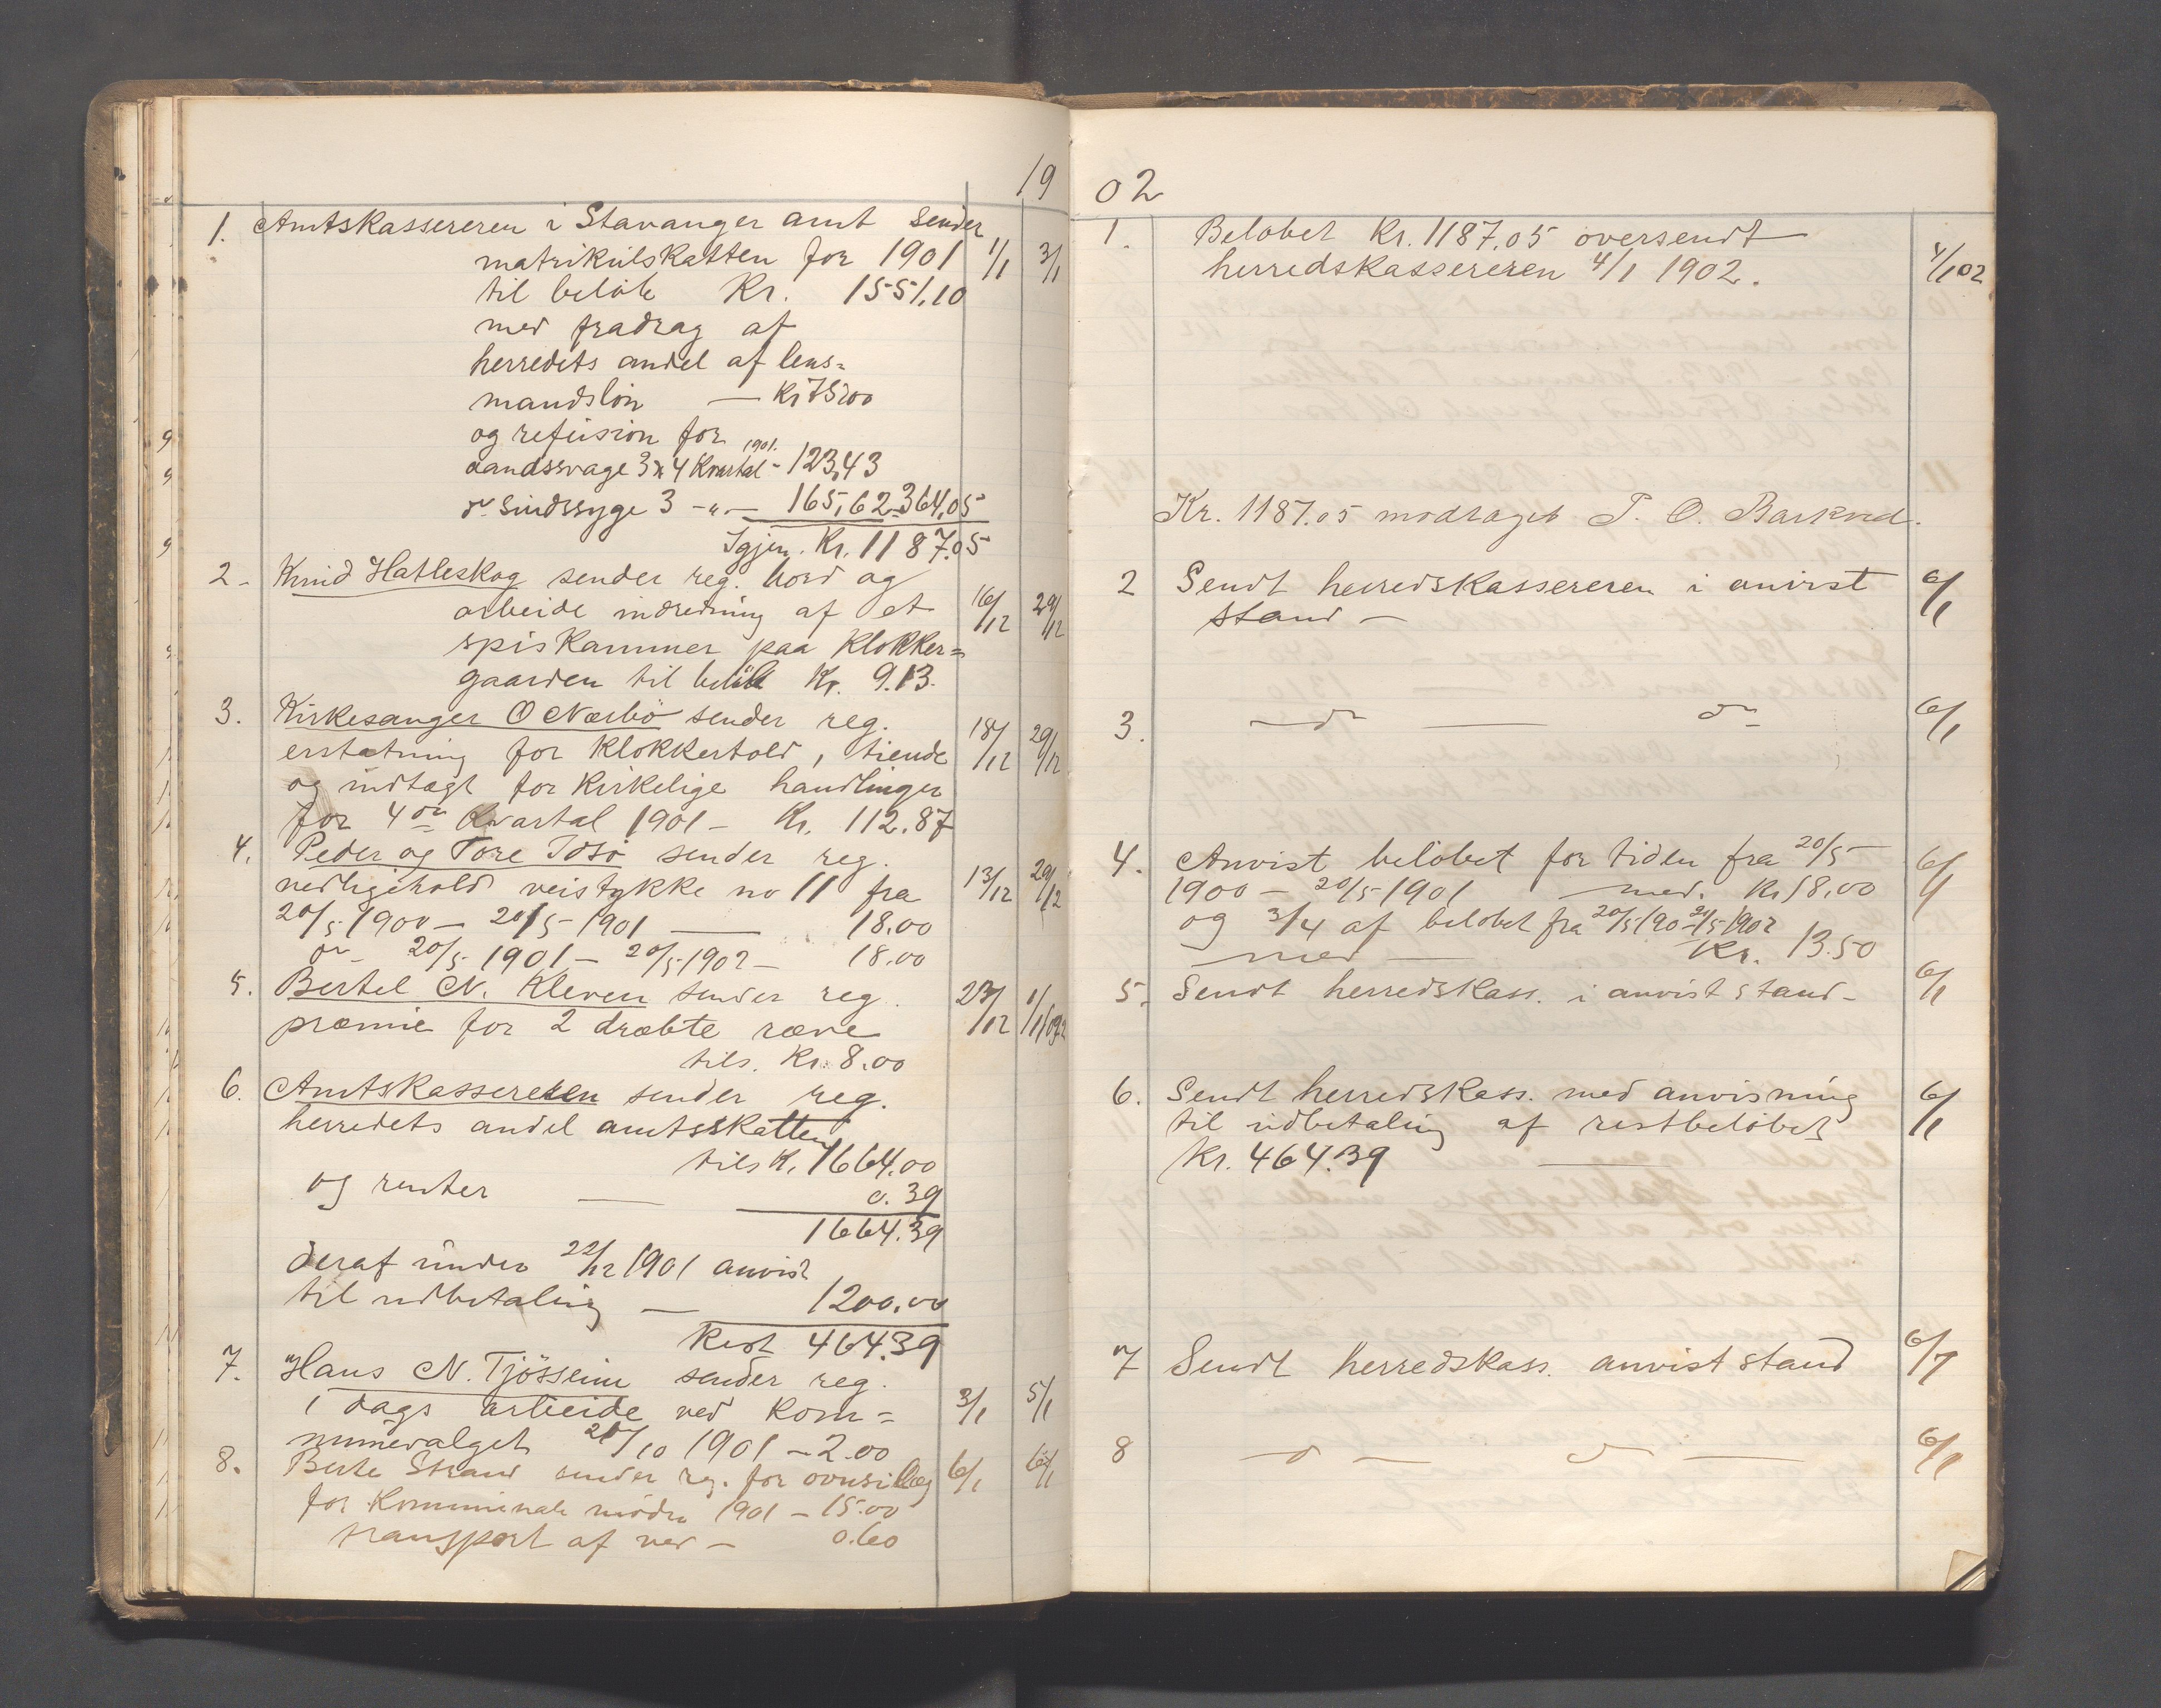 19
1. Amtskassereren i Stavanger amt sender
matrikulskatten for 1901 1/1 3/1
til beløb Kr. 1551,10
med fradrag af
herredets andel af lens=
mandsløn — Kr 75,00
og refusion for
aandssvage 3 & 4 Kvartal 1901. - 123,43
do Sindssyge 3 - " - 165,62 364,05
Igjen. Kr. 1187.05
2. Knud Hatleskog sender reg. bord og
arbeide indredning af et 16/12 29/12
spiskammer paa Klokker=
gaarden til beløb Kr. 9.13.
3. Kirkesanger O Nærbö sender reg.
erstatning for Klokkertold, tiende 18/12 29/12
og indtægt for Kirkelige handlinger
for 4de Kvartal 1901 - Kr. 112.87
4. Peder og Tore Idsö sender reg.
vedligehold veistykke no 11 fra 13/12 29/12
20/5 1900 - 20/5 1901 — 18.00
do - 20/5 1901 - 20/5 1902 - 18.00
5. Bertel N. Kleven sender reg. 23/12 1/1 02
præmie for 2 dræbte ræve
tils. Kr. 8.00
6. Amtskassereren sender reg.
herredets andel amtsskatten
tils K. 1664.00
og renter — 0.39
1664.39
deraf under 22/12 1901 anvist
til udbetaling — 1200.00
Rest 464.39
7. Hans N. Tjössem sender reg.
1 dags arbeide ved Kom= 3/1 5/1
munevalget 28/10 1901 - 2.00
8. Berte Strand sender reg. for ovnsilæg 6/1 6/1
for Kommunale møder 1901 - 15.00
transport af ved - 0.60
02
1. Beløbet Kr. 1187,05 oversendt
herredskassereren 4/1 1902. 4/1 02
Kr. 1187.05 modtaget P. O. Barkved.
2 Sendt herredskassereren i anvist 6/1
stand -
3. - do — do 6/1
4. Anvist beløbet for tiden fra 20/5 6/1
1900 - 20/5 1901 med. Kr 18.00
og 3/4 af beløbet fra 20/5 190 - 20/5 1902
med — Kr. 13.50
5. Sendt herredskass. i anvist stand - 6/1
6. Sendt herredskass. med anvisning 6/1
til udbetaling af restbeløbet
Kr. 464.39 —
7 Sendt herredskass. anvist stand 6/1
8 - d - d — 6/1